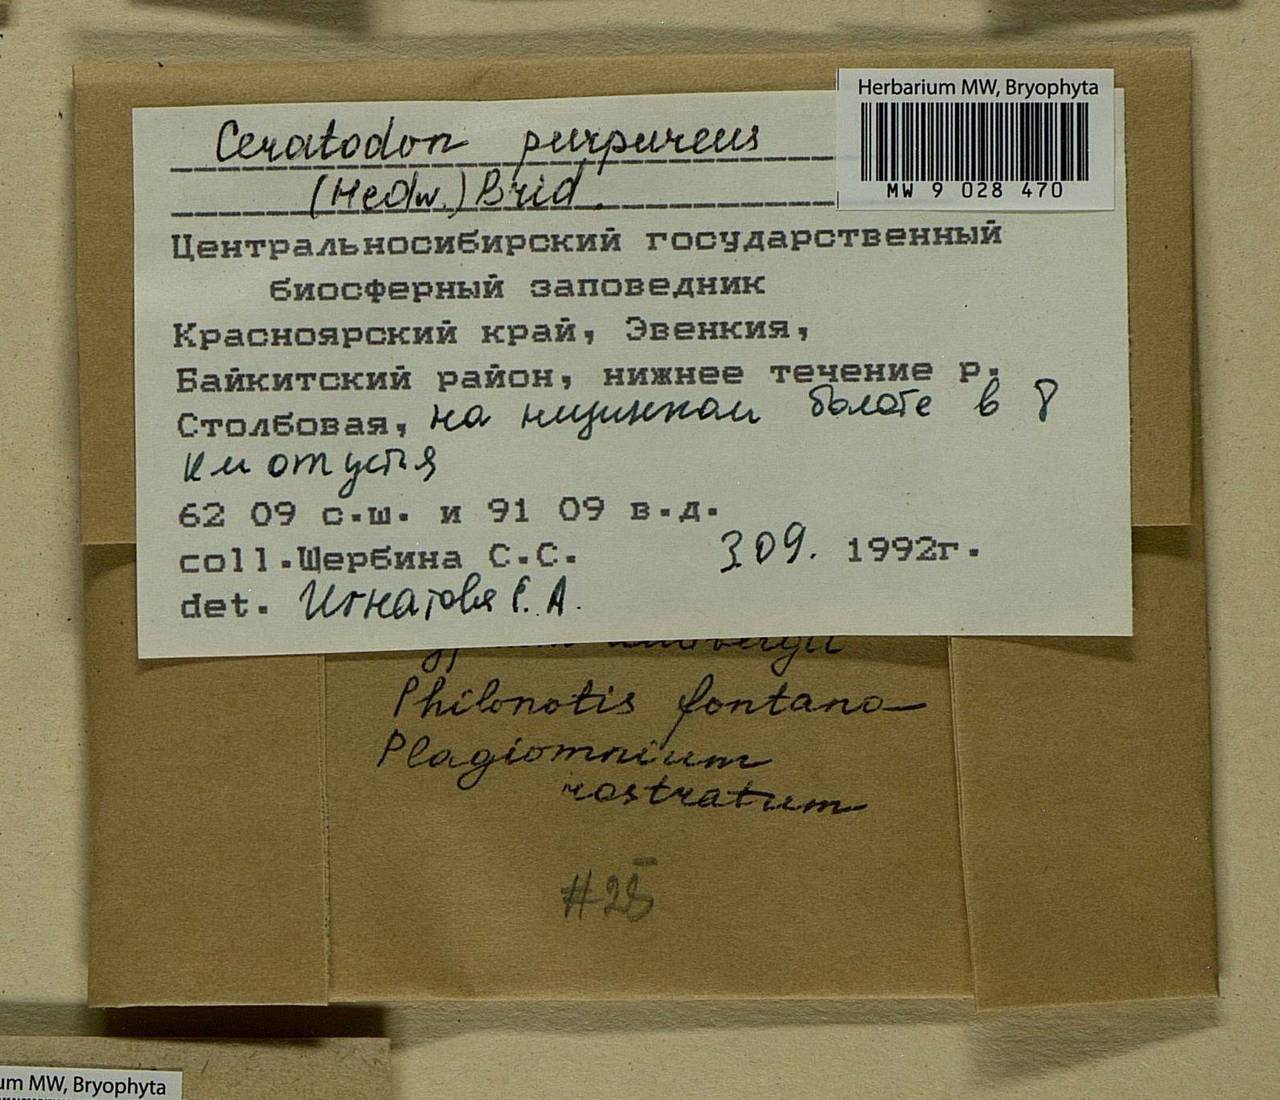 Herbarium MW, Bryophyta
MW 9 028 470
Ceratodon purpureus
(Hedw.) Brid.
Центральносибирский государственный
биосферный заповедник
Красноярский край, Эвенкия,
Байкитский район, нижнее течение р.
Столбовая, на низинном болоте в 8
км от устья
62 09 с.ш. и 91 09 в.д.
coll. Щербина С.С. 3.09. 1992г.
det. Игнатова Е.А.
Philonotis fontana
Plagiomnium
rostratum
#28
um MW, Bryophyta